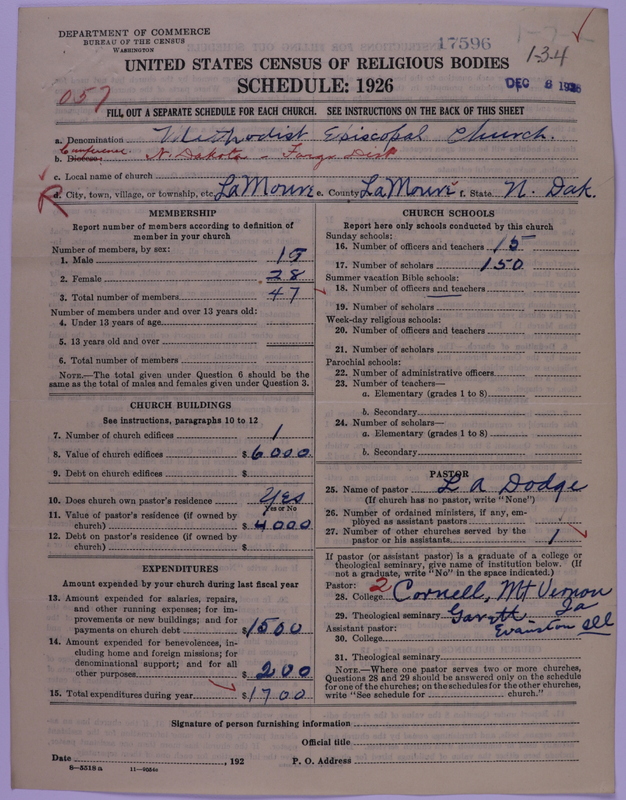 DEPARTMENT OF COMMERCE
BUREAU OF THE CENSUS
WASHINGTON
17596
1-3-4
UNITED STATES CENSUS OF RELIGIOUS BODIES
SCHEDULE: 1926
DEC 8 1926
057
FILL OUT A SEPARATE SCHEDULE FOR EACH CHURCH. SEE INSTRUCTIONS ON THE BACK OF THIS SHEET
a. Denomination Methodist Episcopal Church.
Conference
b. Diocese: N. Dakota - Fargo Dist
c. Local name of church
d. City, town, village, or township, etc. LaMoure e. County LaMoure f. State N. Dak.
MEMBERSHIP
Report number of members according to definition of member in your church
Number of members, by sex:
1. Male 19
2. Female 28
3. Total number of members 47
Number of members under and over 13 years old:
4. Under 13 years of age
5. 13 years old and over
6. Total number of members
NOTE.—The total given under Question 6 should be the
same as the total of males and females given under Question 3.
CHURCH BUILDINGS
See instructions, paragraphs 10 to 12
7. Number of church edifices 1
8. Value of church edifices $ 6000
9. Debt on church edifices $
10. Does church own pastor's residence Yes
Yes or No
11. Value of pastor's residence (if owned by
church) $ 4000
12. Debt on pastor's residence (if owned by
church) $
EXPENDITURES
Amount expended by your church during last fiscal year
13. Amount expended for salaries, repairs,
and other running expenses; for im-
provements or new buildings; and for
payments on church debt $ 1500
14. Amount expended for benevolences, in-
cluding home and foreign missions; for
denominational support; and for all
other purposes $ 200
15. Total expenditures during year $ 1700
CHURCH SCHOOLS
Report here only schools conducted by this church
Sunday schools:
16. Number of officers and teachers 15
17. Number of scholars 150
Summer vacation Bible schools:
18. Number of officers and teachers
19. Number of scholars
Week-day religious schools:
20. Number of officers and teachers
21. Number of scholars
Parochial schools:
22. Number of administrative officers
23. Number of teachers—
a. Elementary (grades 1 to 8)
b. Secondary
24. Number of scholars—
a. Elementary (grades 1 to 8)
b. Secondary
PASTOR
25. Name of pastor L A Dodge
(If church has no pastor, write "None")
26. Number of ordained ministers, if any, em-
ployed as assistant pastors
27. Number of other churches served by the
pastor or his assistants 1
If pastor (or assistant pastor) is a graduate of a college or
theological seminary, give name of institution below. (If
not a graduate, write "No" in the space indicated.)
Pastor: 2
28. College Cornell, Mt Vernon Ia
29. Theological seminary Garrett Evanston Ill
Assistant pastor:
30. College
31. Theological seminary
NOTE.—Where one pastor serves two or more churches,
Questions 28 and 29 should be answered only on the schedule
for one of the churches; on the schedules for the other churches,
write "See schedule for church."
Signature of person furnishing information
Official title
Date , 192 P. O. Address
8—5518 a 11—9054a